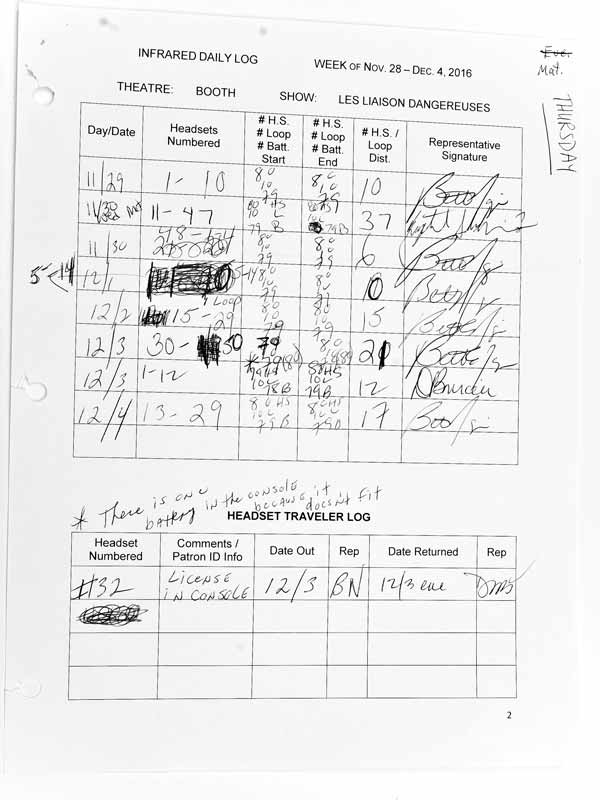 INFRARED DAILY LOG WEEK OF NOV. 28 – DEC. 4, 2016
Eve.
Mat.
THURSDAY
THEATRE: BOOTH SHOW: LES LIAISON DANGEREUSES
Day/Date Headsets Numbered # H.S. # Loop # Batt. Start # H.S. # Loop # Batt. End # H.S. / Loop Dist. Representative Signature
11/29 1-10 80 10 79 80 10 79 10
11/30 11-47 80 HS 10 L 79 B 80 HS 10L 79B 37
11/30 80 10 79 80 10 79 6
12/1 5-14 80 10 79 80 10 79 10
12/2 15-29 1 Loop 80 10 79 80 10 79 15
12/3 30-50 79 80 21
12/3 1-12 79 HS 10L 78B 80HS 10L 79B 12
12/4 13-29 80HS 10L 79B 80 10L 79B 17
* There is one
battery in the console
because it
doesn't fit
HEADSET TRAVELER LOG
Headset Numbered Comments / Patron ID Info Date Out Rep Date Returned Rep
#32 LICENSE IN CONSOLE 12/3 BN 12/3 eve
2